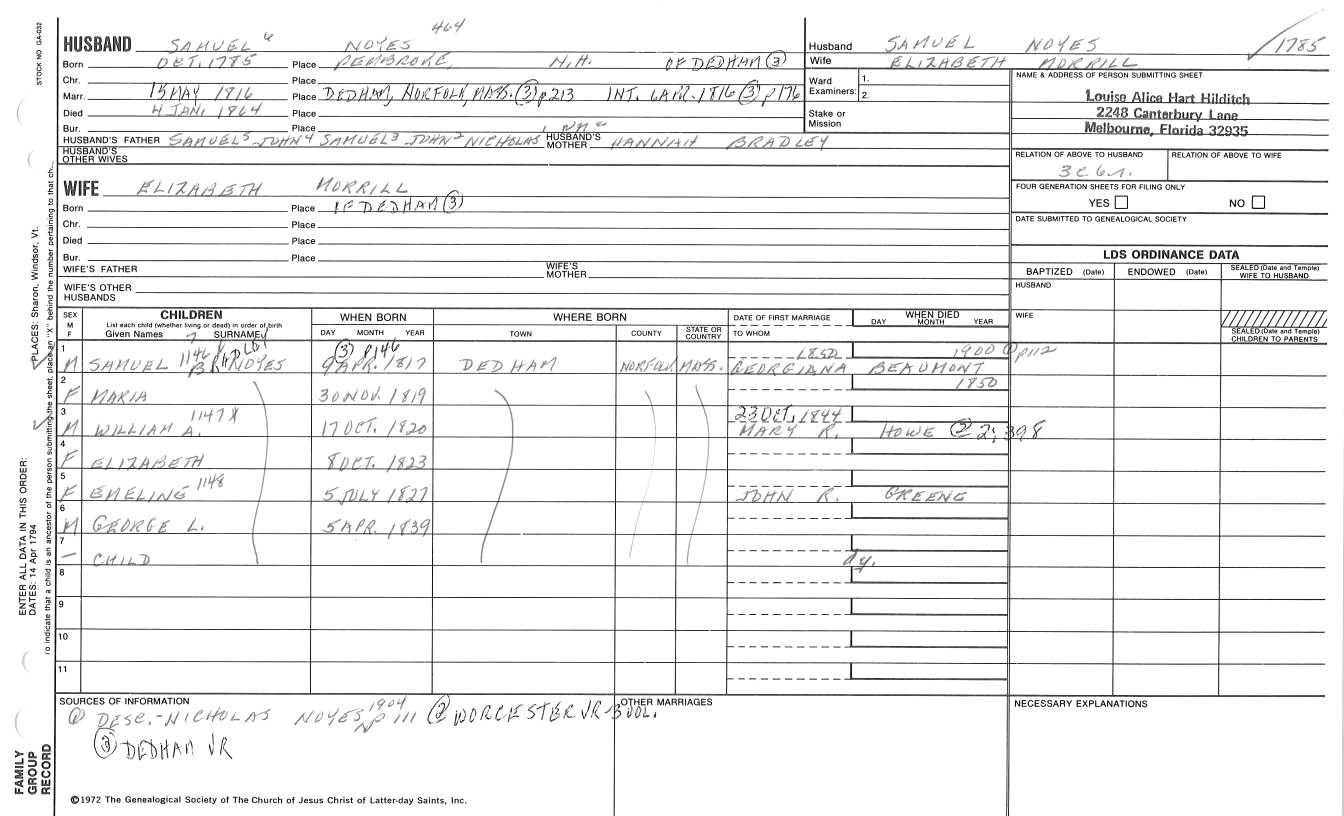 464
STOCK NO GA-032
HUSBAND SAMUEL 6 NOYES
Born OCT. 1785 Place PEMBROKE, N.H. OF DEDHAM (3)
Chr. Place
Marr. 15 MAY 1816 Place DEDHAM, NORFOLK, MASS. (3) p213 INT. 6 APR. 1816 (3) p176
Died 4 JAN. 1864 Place
Bur. Place
HUSBAND'S FATHER SAMUEL 5 JOHN 4 SAMUEL 3 JOHN 2 NICHOLAS 1 HUSBAND'S MOTHER HANNAH BRADLEY
HUSBAND'S OTHER WIVES
Husband SAMUEL NOYES 1785
Wife ELIZABETH MORRILL
Ward Examiners: 1.
2.
Stake or Mission
NAME & ADDRESS OF PERSON SUBMITTING SHEET
Louise Alice Hart Hilditch
2248 Canterbury Lane
Melbourne, Florida 32935
RELATION OF ABOVE TO HUSBAND RELATION OF ABOVE TO WIFE
3 C 6 r.
FOUR GENERATION SHEETS FOR FILING ONLY
YES NO
DATE SUBMITTED TO GENEALOGICAL SOCIETY
WIFE ELIZABETH MORRILL
Born Place OF DEDHAM (3)
Chr. Place
Died Place
Bur. Place
WIFE'S FATHER WIFE'S MOTHER
WIFE'S OTHER HUSBANDS
LDS ORDINANCE DATA
BAPTIZED (Date) ENDOWED (Date) SEALED (Date and Temple) WIFE TO HUSBAND
HUSBAND
WIFE
SEALED (Date and Temple) CHILDREN TO PARENTS
SEX M F CHILDREN WHEN BORN WHERE BORN DATE OF FIRST MARRIAGE WHEN DIED
List each child (whether living or dead) in order of birth
Given Names 7 SURNAME DAY MONTH YEAR TOWN COUNTY STATE OR COUNTRY TO WHOM DAY MONTH YEAR
1 1146 (3) p146 1850 1900 p112
M SAMUEL BRADLEY NOYES 9 APR. 1817 DEDHAM NORFOLK MASS. GEORGIANA BEAUMONT
2 1850
F MARIA 30 NOV. 1819
3 1147 X 23 OCT. 1844
M WILLIAM A. 17 OCT. 1820 MARY R. HOWE (2) 2:398
4
F ELIZABETH 8 OCT. 1823
5 1148
F EMELINE 5 JULY 1827 JOHN R. GREENE
6
M GEORGE L. 5 APR. 1839
7
– CHILD dy.
8
9
10
11
SOURCES OF INFORMATION OTHER MARRIAGES NECESSARY EXPLANATIONS
(1) DESC.-NICHOLAS NOYES 1904 p 111 (2) WORCESTER VR-3 VOL.
(3) DEDHAM VR
©1972 The Genealogical Society of The Church of Jesus Christ of Latter-day Saints, Inc.
FAMILY GROUP RECORD
ENTER ALL DATA IN THIS ORDER:
DATES: 14 Apr 1794
PLACES: Sharon, Windsor, Vt.
To indicate that a child is an ancestor of the person submitting the sheet, place an "X" behind the number pertaining to that ch.